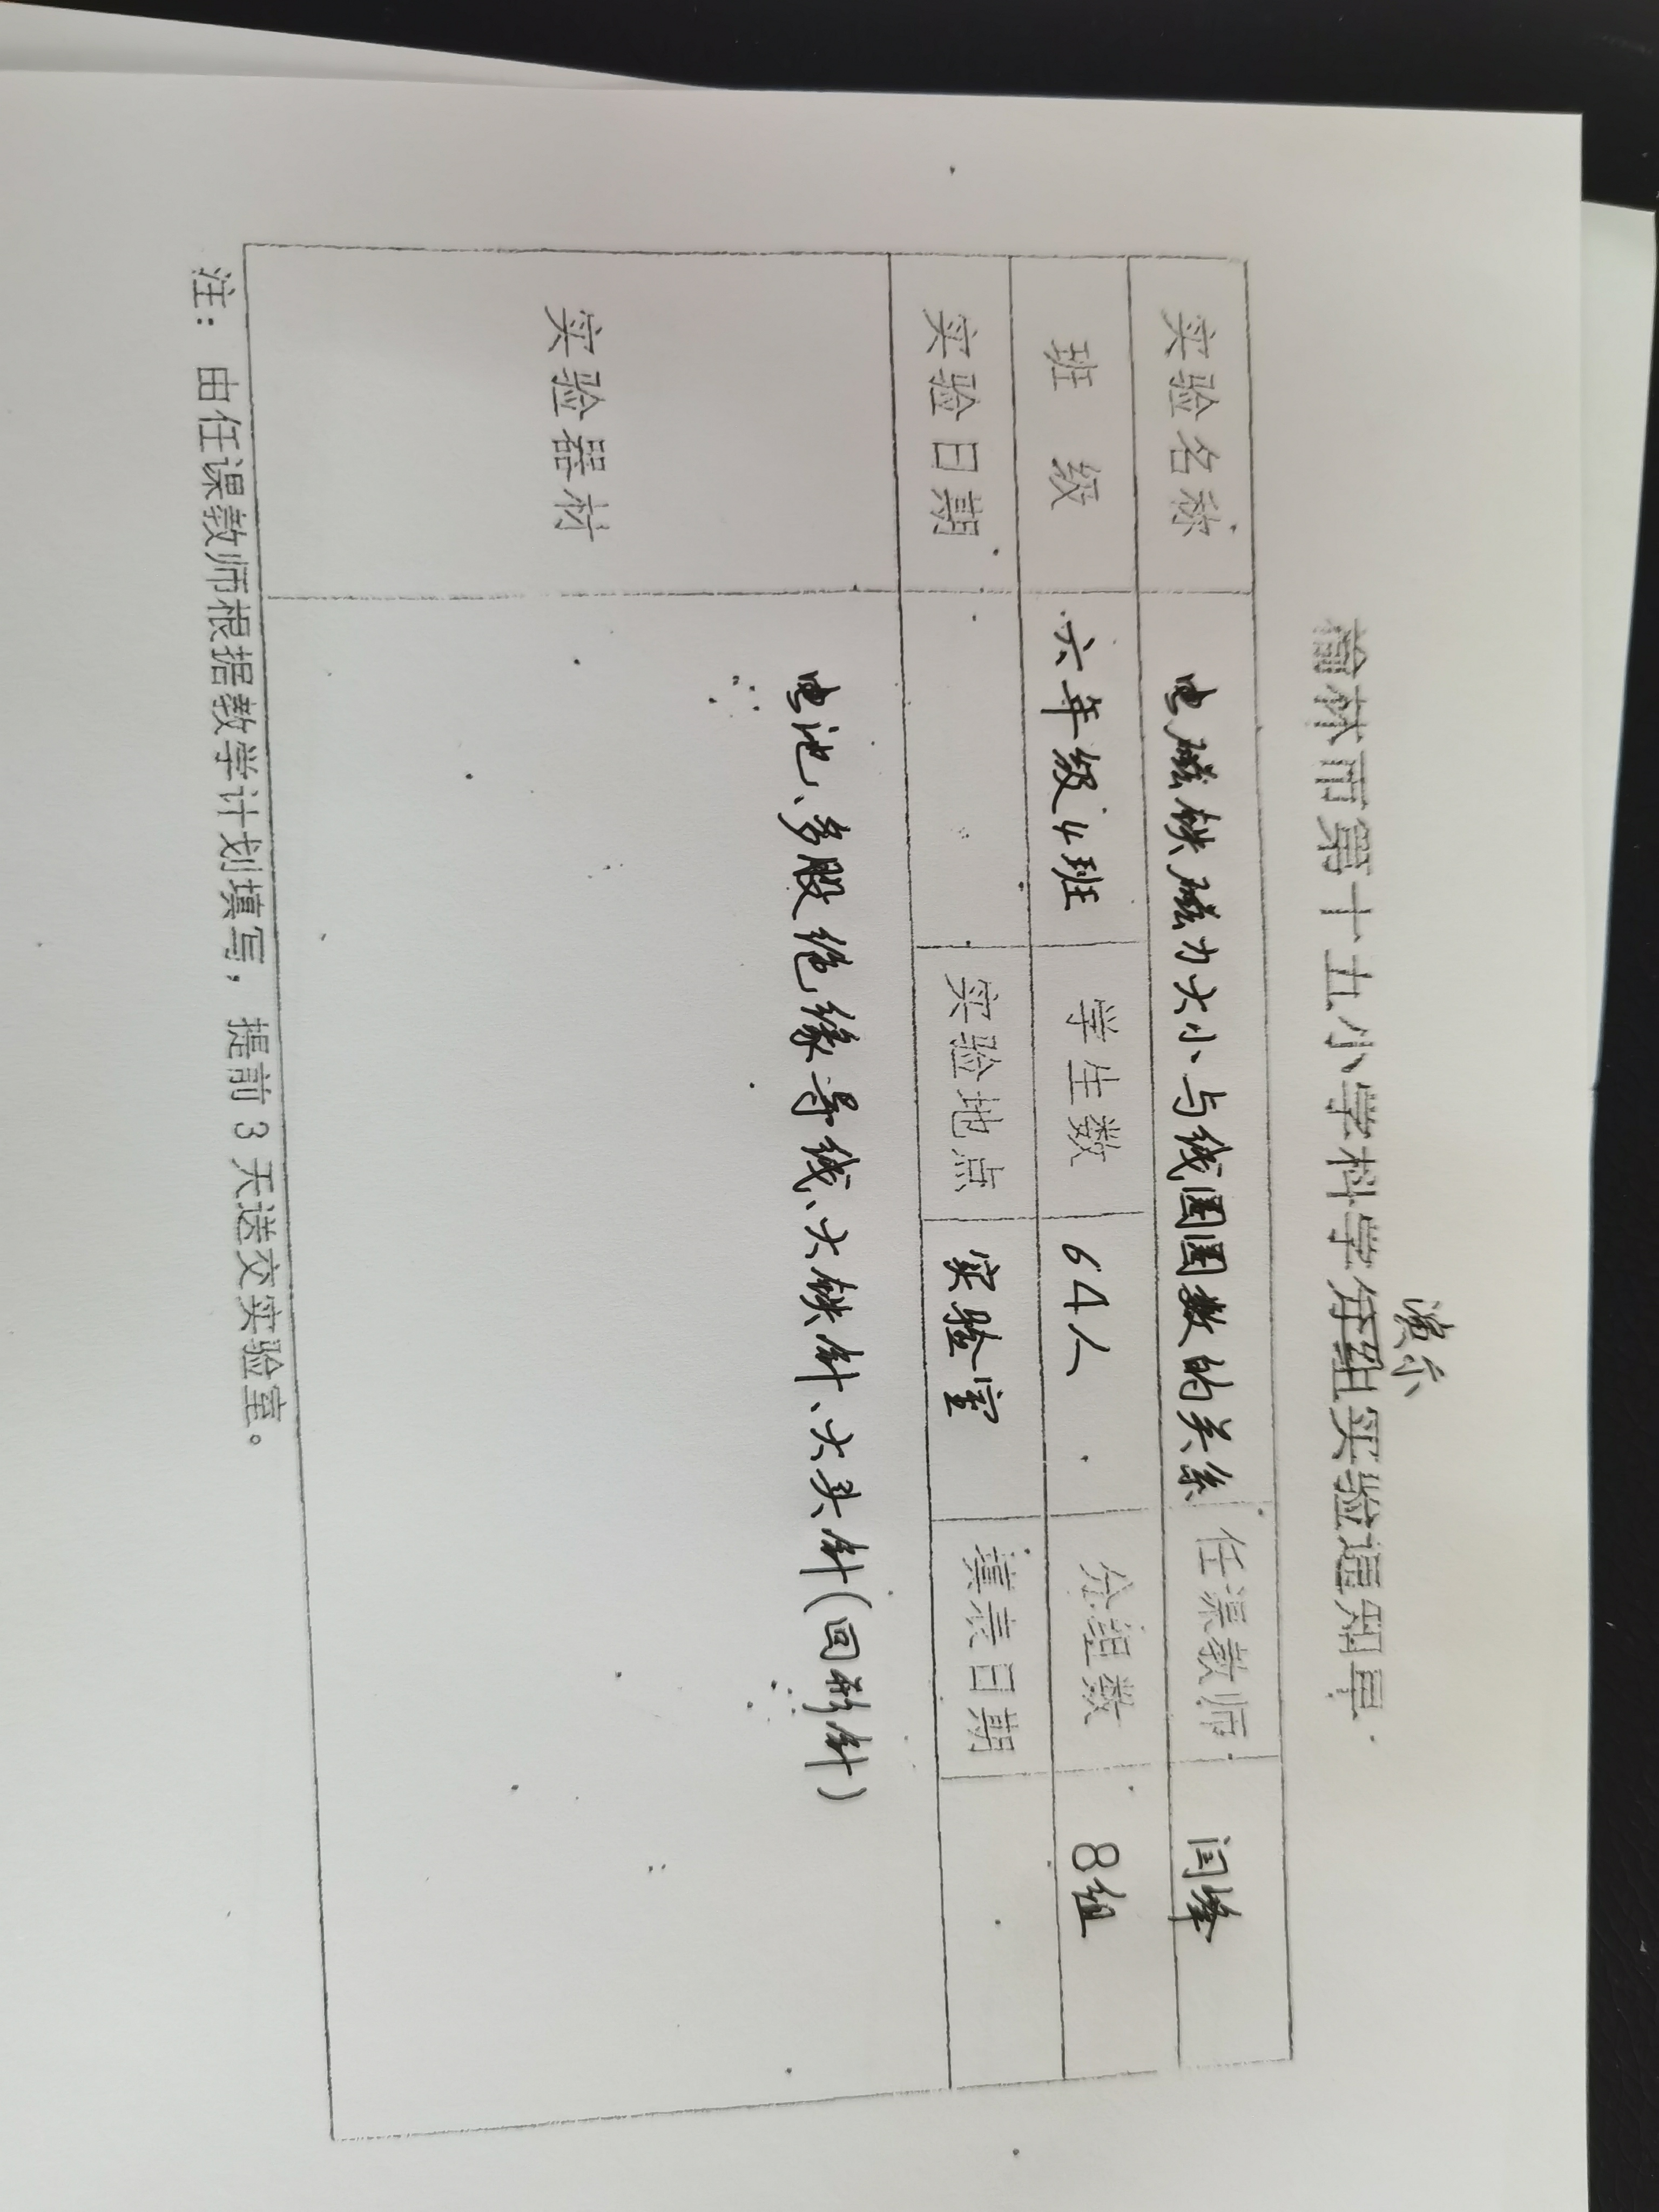 演示
榆林市第十五小学科学分组实验通知单
实验名称 电磁铁磁力大小与线圈圈数的关系 任课教师 闫峰
班 级 六年级4班 学生数 64人 分组数 8组
实验日期 实验地点 实验室 填表日期
实验器材 电池、多股绝缘导线、大铁针、大头针(回形针)
注：由任课教师根据教学计划填写，提前3天送交实验室。